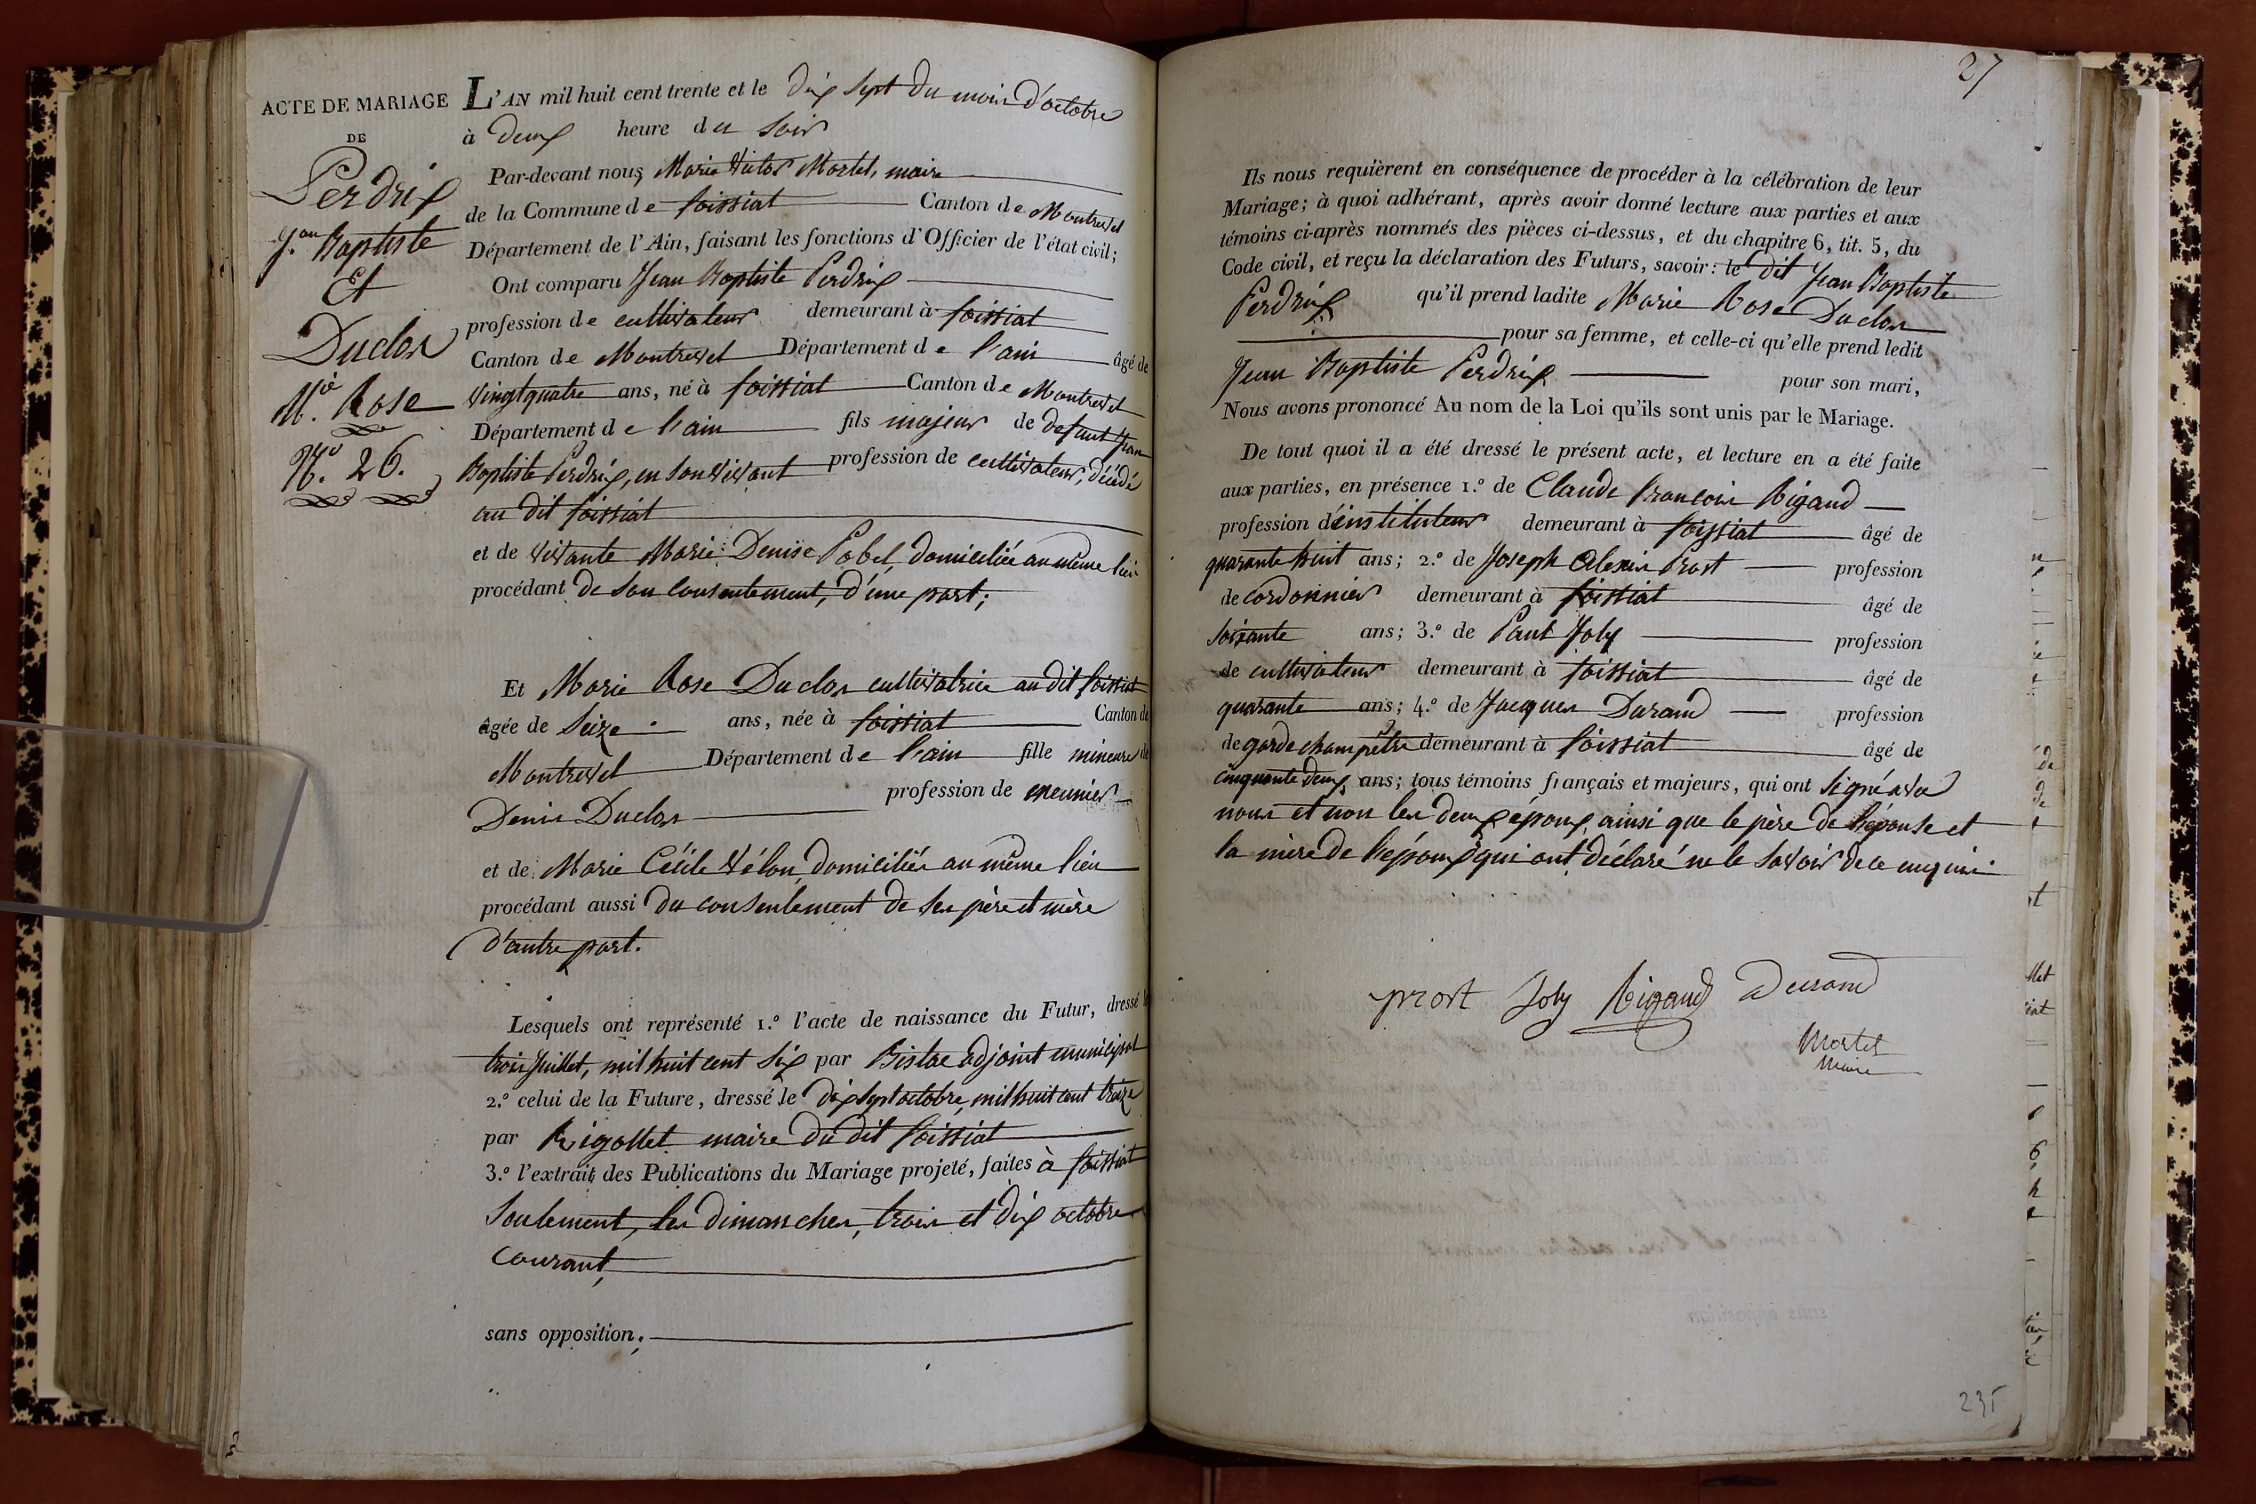 ACTE DE MARIAGE
DE
Perdrix
J.an Baptiste
Et
Duclos
M.ie Rose
N.o 26.
L'AN mil huit cent trente et le dix sept du mois d'octobre
à deux heure du soir
Par-devant nous, Marie Victor Mortel, maire
de la Commune de foissiat Canton de Montrevel
Département de l'Ain, faisant les fonctions d'Officier de l'état civil;
Ont comparu Jean Baptiste Perdrix
profession de cultivateur demeurant à foissiat
Canton de Montrevel Département de l'ain âgé de
vingt quatre ans, né à foissiat Canton de Montrevel
Département de l'ain fils majeur de defunt Jean
Baptiste Perdrix, en son vivant profession de cultivateur, décédé
au dit foissiat
et de vivante Marie Denise Pobel, domiciliée au même lieu
procédant de son consentement, d'une part;
Et Marie Rose Duclos cultivatrice au dit foissiat
âgée de seize ans, née à foissiat Canton de
Montrevel Département de l'ain fille mineure de
Denis Duclos profession de meunier
et de Marie Cécile Vélon, domiciliés au même lieu
procédant aussi du consentement de ses père et mère
d'autre part.
Lesquels ont représenté 1.º l'acte de naissance du Futur, dressé le
trois Juillet, mil huit cent six par Bistac adjoint municipal
2.º celui de la Future, dressé le dix sept octobre, mil huit cent treize
par Rigollet maire du dit foissiat
3.º l'extrait des Publications du Mariage projeté, faites à foissiat
seulement, les dimanches, trois et dix octobre
courant,
sans opposition.
27
Ils nous requièrent en conséquence de procéder à la célébration de leur
Mariage; à quoi adhérant, après avoir donné lecture aux parties et aux
témoins ci-après nommés des pièces ci-dessus, et du chapitre 6, tit. 5, du
Code civil, et reçu la déclaration des Futurs, savoir: le dit Jean Baptiste
Perdrix qu'il prend ladite Marie Rose Duclos
pour sa femme, et celle-ci qu'elle prend ledit
Jean Baptiste Perdrix pour son mari,
Nous avons prononcé Au nom de la Loi qu'ils sont unis par le Mariage.
De tout quoi il a été dressé le présent acte, et lecture en a été faite
aux parties, en présence 1.º de Claude françois Rigaud
profession d'instituteur demeurant à foissiat âgé de
quarante huit ans; 2.º de Joseph Alexis Prost profession
de cordonnier demeurant à foissiat âgé de
soixante ans; 3.º de Paul Joly profession
de cultivateur demeurant à foissiat âgé de
quarante ans; 4.º de Jacques Durand profession
de garde champêtre demeurant à foissiat âgé de
cinquante deux ans; tous témoins français et majeurs, qui ont signé avec
nous et non les deux époux, ainsi que le père de l'épouse et
la mère de l'époux qui ont déclaré ne le savoir de ce enquis
prost Joly Rigaud Durand
Mortel
Maire
235